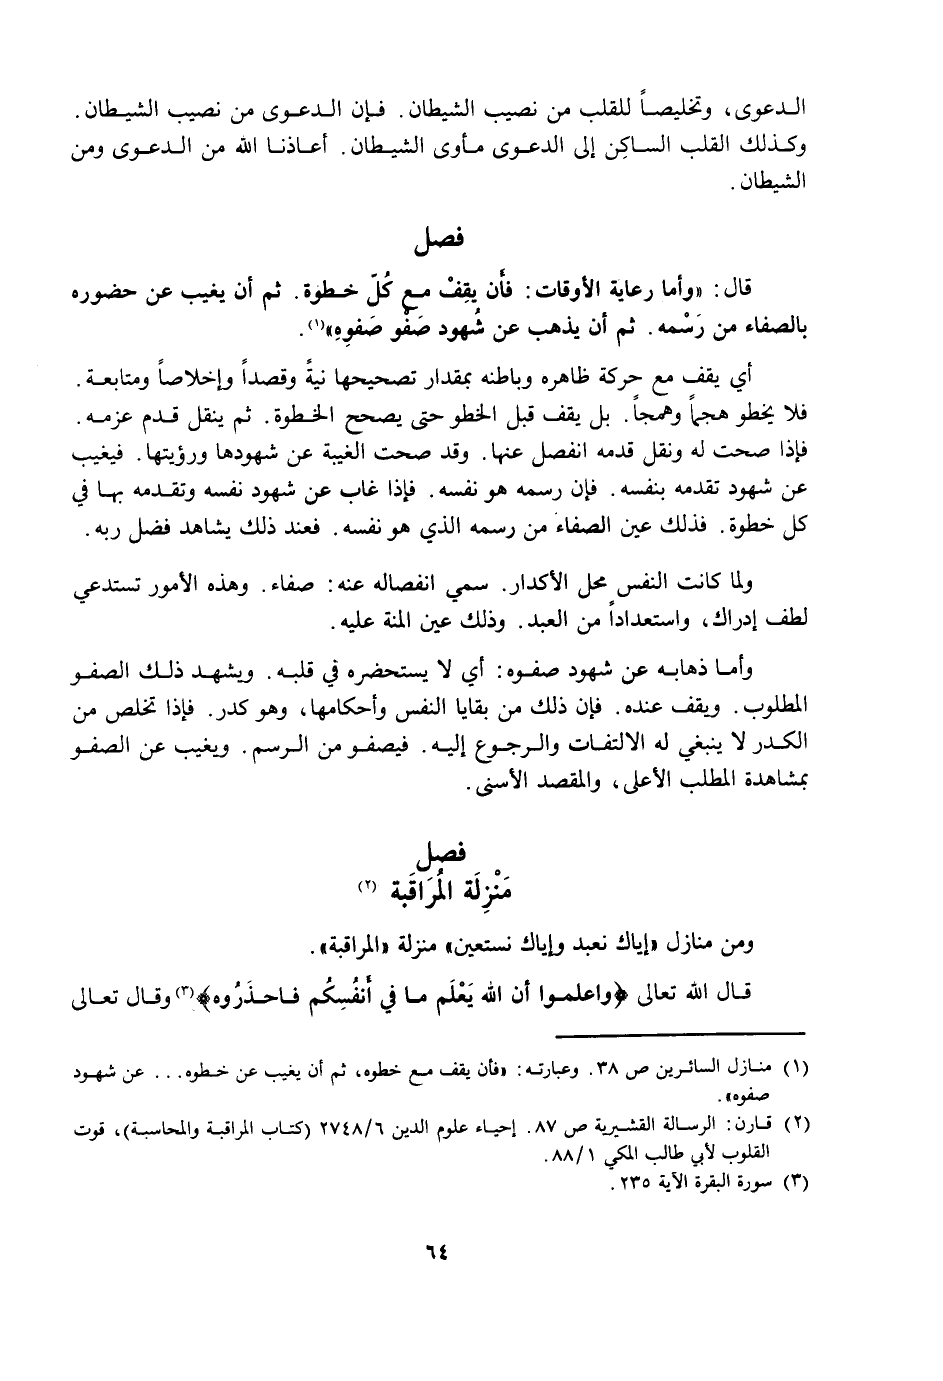 الدعوى، وتخليصاً للقلب من نصيب الشيطان. فإن الدعوى من نصيب الشيطان.
وكذلك القلب الساكِن إلى الدعوى مأوى الشيطان. أعاذنا الله من الدعوى ومن
الشيطان.
فصل
قال: «وأما رعاية الأوقات: فأَن يقِفْ مع كُلّ خطوة. ثم أن يغيب عن حضوره
بالصفاء من رَسْمه. ثم أن يذهب عن شُهود صَفْو صَفوِهِ»(١).
أي يقف مع حركة ظاهره وباطنه بمقدار تصحيحها نيةً وقصداً وإخلاصاً ومتابعة.
فلا يخطو هجماً وهمجاً. بل يقف قبل الخطو حتى يصحح الخطوة. ثم ينقل قدم عزمه.
فإذا صحت له ونقل قدمه انفصل عنها. وقد صحت الغيبة عن شهودها ورؤيتها. فيغيب
عن شهود تقدمه بنفسه. فإن رسمه هو نفسه. فإذا غاب عن شهود نفسه وتقدمه بها في
كل خطوة. فذلك عين الصفاء من رسمه الذي هو نفسه. فعند ذلك يشاهد فضل ربه.
ولما كانت النفس محل الأكدار. سمي انفصاله عنه: صفاء. وهذه الأمور تستدعي
لطف إدراك، واستعداداً من العبد. وذلك عين المنة عليه.
وأما ذهابه عن شهود صفوه: أي لا يستحضره في قلبه. ويشهد ذلك الصفو
المطلوب. ويقف عنده. فإن ذلك من بقايا النفس وأحكامها، وهو كدر. فإذا تخلص من
الكدر لا ينبغي له الالتفات والرجوع إليه. فيصفو من الرسم. ويغيب عن الصفو
بمشاهدة المطلب الأعلى، والمقصد الأسنى.
فصل
مَنْزِلَة المُرَاقَبة (٢)
ومن منازل «إياك نعبد وإياك نستعين» منزلة «المراقبة».
قال الله تعالى ﴿واعلموا أن الله يَعْلَم ما في أَنفُسِكُم فاحذَرُوه﴾(٣) وقال تعالى
(١) منازل السائرين ص ٣٨. وعبارته: «فأن يقف مع خطوه، ثم أن يغيب عن خطوه... عن شهود
صفوه».
(٢) قارن: الرسالة القشيرية ص ٨٧. إحياء علوم الدين ٢٧٤٨/٦ (كتاب المراقبة والمحاسبة)، قوت
القلوب لأبي طالب المكي ٨٨/١.
(٣) سورة البقرة الآية ٢٣٥.
٦٤